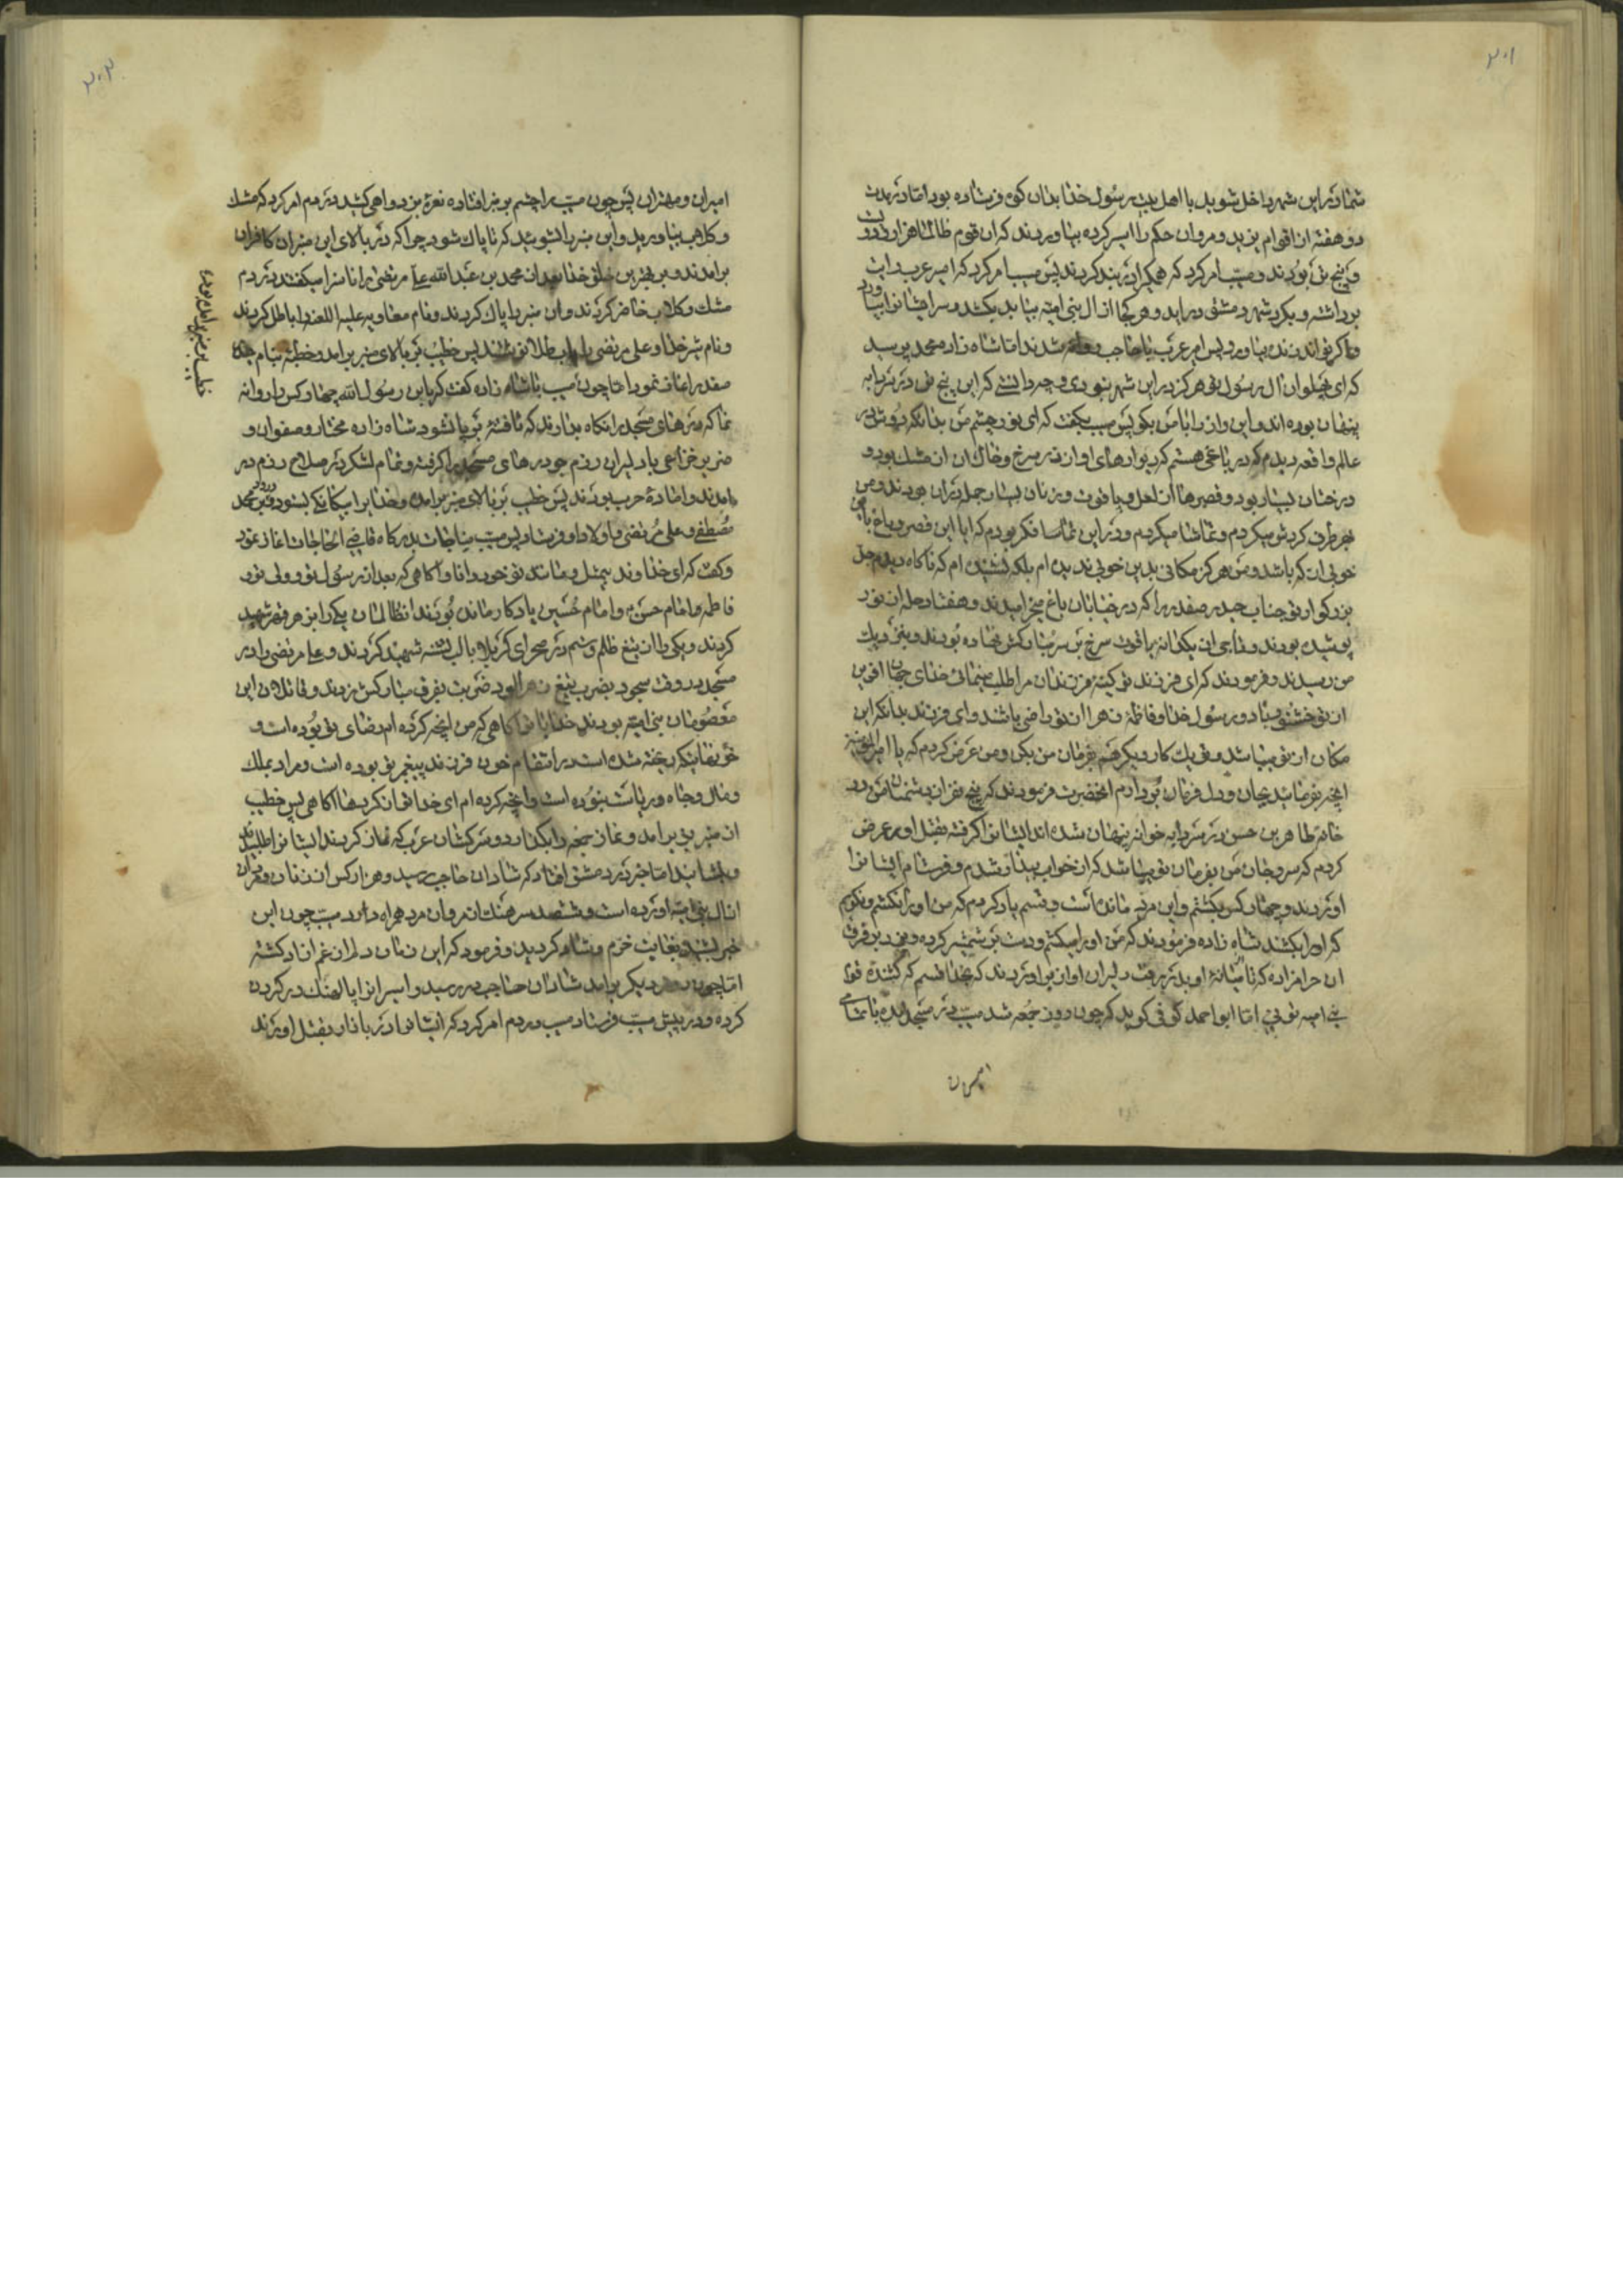 ۲۰۱
شما در این شهر داخل شوید با اهل بیت رسول خدا بدان کوی فرستاده بود اما در مدت
دو هفته از اقوام یزید و مروان حکم را اسیر کرده بیاوردند که ان قوم ظالم هزار و دوی
و پنج تن بودند و مسیب امر کرد که همکی را در بند کردند پس مسیب امر کرد که امیر عرب رایت
برداشته و بکرد شهر دمشق درآید و هر کجا از ال بنی امیه بیابد بکشد و سر ایشانرا بیاورد
و اکر تواند زنده بیاورد پس امیر عرب با حاجب روانه شدند اما شاه زاده محمد پرسید
که ای پهلوان ال رسول تو هرکز در این شهر نبودی و چه دانستی که این پنج تن در سردابه
پنهان بوده اند و این راز را با من بکوی پس مسیب بکفت که ای نور چشم من بدانکه دوش در
عالم واقعه دیدم که در باغی هستم که دیوارهای او از زر سرخ و خاک ان از مشک بود و
درختان بسیار بود و قصرها از لعل و یاقوت و زنان بسیار جمله در ان بودند و من
بهر طرف کردش میکردم و تماشا میکردم و در این تماشا فکر بودم که ایا این قصر و باغ باین
خوبی از که باشد و من هرکز مکانی بدین خوبی ندیده ام بلکه نشنیده ام که ناکاه دیدم جد
بزرکوار تو جناب حیدر صفدر را که در خیابان باغ میخرامیدند و هفتاد حله از نور
پوشیده بودند و تاجی از یکدانه یاقوت سرخ بر سر مبارکش نهاده بودند و بنزدیک
من رسیدند و فرمودند که ای فرزند تو کینهٔ فرزندان مرا طلب مینمائی خدای جهان افرین
از تو خشنود باد و رسول خدا و فاطمهٔ زهرا از تو راضی باشند و ای فرزند بدانکه این
مکان از تو میباشد و تو یک کار دیکر هم بفرمان من بکن و من عرض کردم که یا امیرالمؤمنین
انچه بفرمائید بجان و دل فرمان بُردارم انحضرت فرمودند که پنج نفر از دشمنان من در
خانهٔ طاهر بن حسن در سردابه خوانه پنهان شده اند ایشانرا کرفته بقتل اور عرض
کردم که سر و جان من بفرمان تو میباشد که از خواب بیدار شدم و فرستادم ایشانرا
اوردند و چهار کس بکشتم و این مرتبه مانده است و قسم یاد کردم که من او را نکشم و نکویم
که او را بکشند شاه زاده فرمودند که من او را میکشم و دست بر شمشیر کرده و بزد بر فرق
ان حرامزاده که تا میانهٔ او بدر رفت دلیران اواز براوردند که بخدا قسم که کشندهٔ قوم
بنی امیه توئی اما ابو احمد کوفی کوید که چون روز جمعه شد مسیب در مسجد امده با تمامی
امیران

۲۰۲
امیران و مهتران پس چون مسیب را چشم بر منبر افتاده نعرهٔ بزد و اهی کشید در دم امر کرد که مشک
و کلاب بیاورید و این منبر را بشویید که تا پاک شود چرا که در بالای این منبران کافران
برامدند و بهترین خلق خدا بعد از محمد بن عبدالله علی مرتضی را ناسزا میکفتند در دم
مشک و کلاب حاضر کردند و ان منبر را پاک کردند و نام معاویه علیه اللعنه را باطل کردند
و نام شیر خدا و علی مرتضی را باب طلا نوشتند پس خطیب بر بالای منبر برامد و خطبه بنام حیدر
صفدر اغاز نمود اما چون مسیب با شاه زاده کفت که یابن رسول الله چهار کس را روانه
نما که درهای مسجد را نکاه بدارند که تا فتنه بر پا نشود شاه زاده مختار و صفوان و
ضریر خزاعی با دلیران رزم جو درهای مسجد را کرفته و تمام لشکر در سلاح رزم در
امدند و امادهٔ حرب بودند پس خطیب بر بالای منبر برامده و خدا را بیکانکی بستود و درود بر محمد
مُصطفی و علی مُرتضی و اولاد او فرستاد پس مسیب مناجات بدرکاه قاضی الحاجات اغاز نمود
و کفت که ای خداوند بیمثل و مانند تو خود دانا و اکاهی که بعد از رسول تو و ولی تو و
فاطمه و امام حسن و امام حُسین یادکار مانده بُودند از ظالمان یکی را بزهر قهر شهید
کردند و یکی را از تیغ ظلم و ستم در صحرای کربلا با لب تشنه شهید کردند و علی مرتضی را در
مسجد در وقت سجود بضرب تیغ زهرالود ضربت بفرق مبارکش زدند و قاتلان این
معصومان بنی امیه بودند خداوندا تو اکاهی که من انچه کرده ام رضای تو بُوده است و
خونهائیکه ریخته شده است در انتقام خون فرزند پیغمبر تو بوده است و مراد بملک
و مال و جاه و ریاست نبوده است و انچه کرده ام ای خدا تو از کردها اکاهی پس خطیب
از منبر بزیر امد و نماز جمعه را بکذارد و سرکشان عرب که نماز کردند ایشانرا طلبیدند
و بنشاند اما خبر در دمشق افتاد که شادان حاجب رسید و هزار کس از زنان و مردان
از ال بنی امیه اورده است و ششصد سرهنک از مروان مرد همراه دارد مسیب چون این
خبر بشنید بغایت خرم و شاد کردید و فرمود که این زمان دلم از غم ازاد کشته
اما چون روز دیکر برامد شادان حاجب در رسید و اسیرانرا پالهنک در کردن
کرده و در پیش مسیب فرستاد مسیب در دم امر کرد که ایشانرا در بازار بقتل اورند